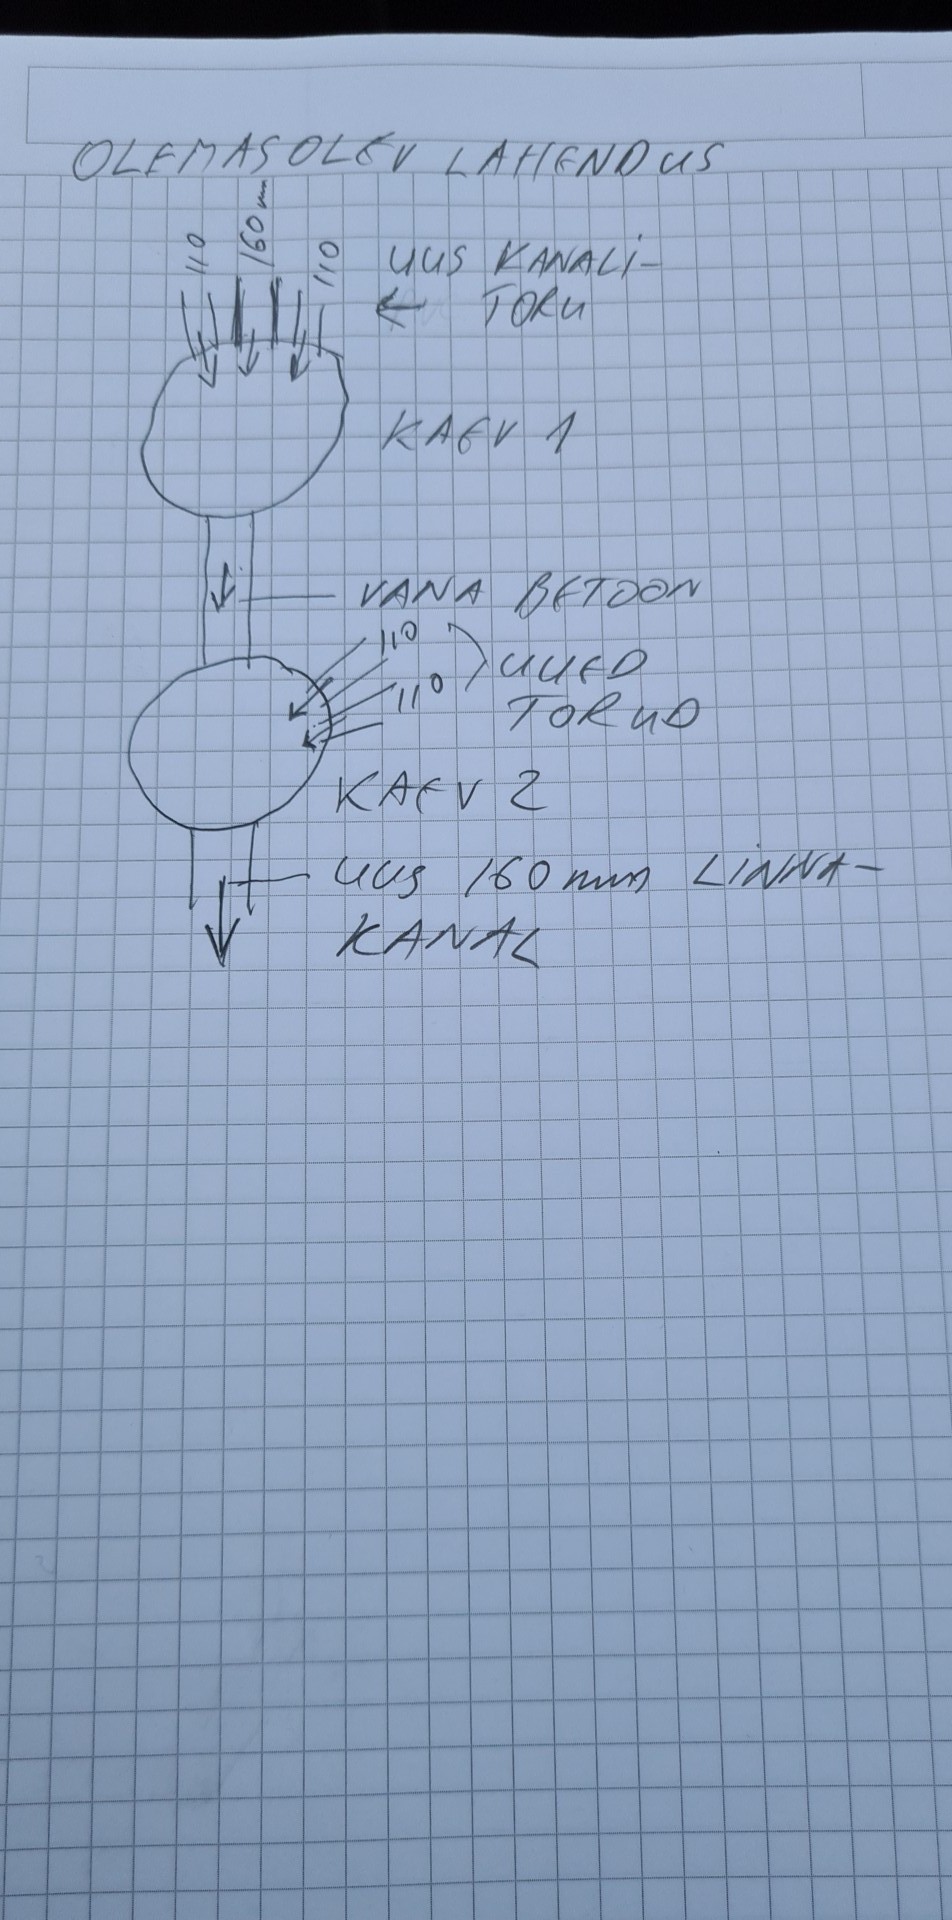 OLEMASOLEV LAHENDUS
110 160mm 110
UUS KANALI-
← TORU
KAEV 1
VANA BETOON
110
UUED
110
TORUD
KAEV 2
UUS 160mm LINNA-
KANAL